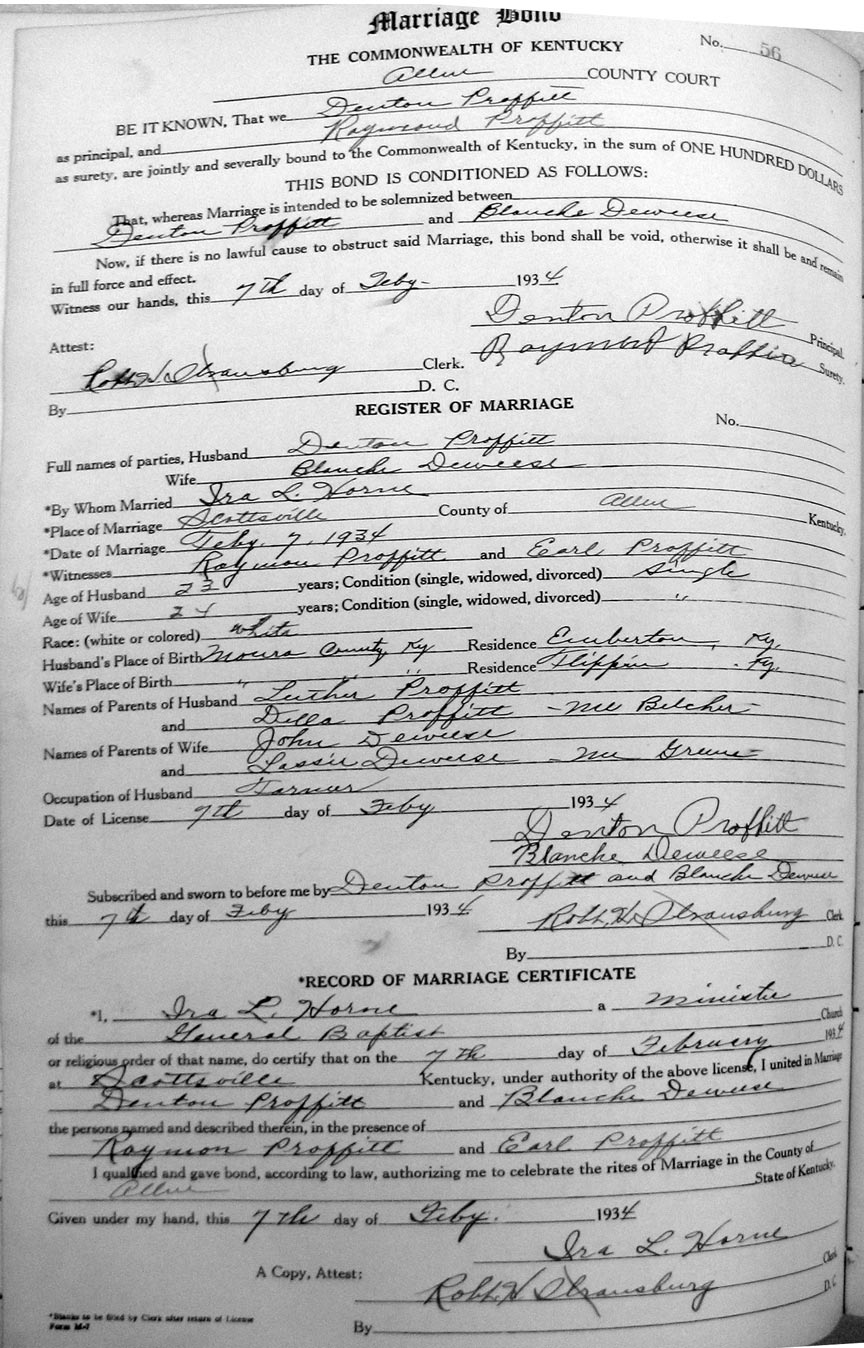 Marriage Bond
No. 56
THE COMMONWEALTH OF KENTUCKY
Allen COUNTY COURT
BE IT KNOWN, That we Denton Proffitt
as principal, and Raymond Proffitt
as surety, are jointly and severally bound to the Commonwealth of Kentucky, in the sum of ONE HUNDRED DOLLARS
THIS BOND IS CONDITIONED AS FOLLOWS:
That, whereas Marriage is intended to be solemnized between
Denton Proffitt and Blanche Deweese
Now, if there is no lawful cause to obstruct said Marriage, this bond shall be void, otherwise it shall be and remain
in full force and effect.
Witness our hands, this 7th day of Feby- 1934
Denton Proffitt Principal.
Attest: Raymond Proffitt Surety.
Robt. H. Stransburg Clerk.
By D. C.
REGISTER OF MARRIAGE
No.
Full names of parties, Husband Denton Proffitt
Wife Blanche Deweese
*By Whom Married Ira L. Horne
*Place of Marriage Scottsville County of Allen Kentucky.
*Date of Marriage Feby. 7, 1934
*Witnesses Raymon Proffitt and Earl Proffitt
Age of Husband 23 years; Condition (single, widowed, divorced) single
Age of Wife 24 years; Condition (single, widowed, divorced) "
Race: (white or colored) white
Husband's Place of Birth Monroe County Ky Residence Emberton, Ky.
Wife's Place of Birth " " " Residence Flippin. Ky.
Names of Parents of Husband Luther Proffitt
and Della Proffitt - Nee Belcher -
Names of Parents of Wife John Deweese
and Lassie Deweese - Nee Greene -
Occupation of Husband Farmer
Date of License 7th day of Feby 1934
Denton Proffitt
Blanche Deweese
Subscribed and sworn to before me by Denton Proffitt and Blanche Deweese
this 7th day of Feby 1934 Robt. H. Stransburg Clerk
By D. C.
*RECORD OF MARRIAGE CERTIFICATE
*I, Ira L. Horne a Minister
of the General Baptist Church
or religious order of that name, do certify that on the 7th day of February 1934
at Scottsville Kentucky, under authority of the above license, I united in Marriage
Denton Proffitt and Blanche Deweese
the persons named and described therein, in the presence of
Raymon Proffitt and Earl Proffitt
I qualified and gave bond, according to law, authorizing me to celebrate the rites of Marriage in the County of
Allen State of Kentucky.
Given under my hand, this 7th day of Feby. 1934
Ira L. Horne
A Copy, Attest: Robt. H. Stransburg Clerk
By D. C.
*Blanks to be filed by Clerk after return of License
Form M-7